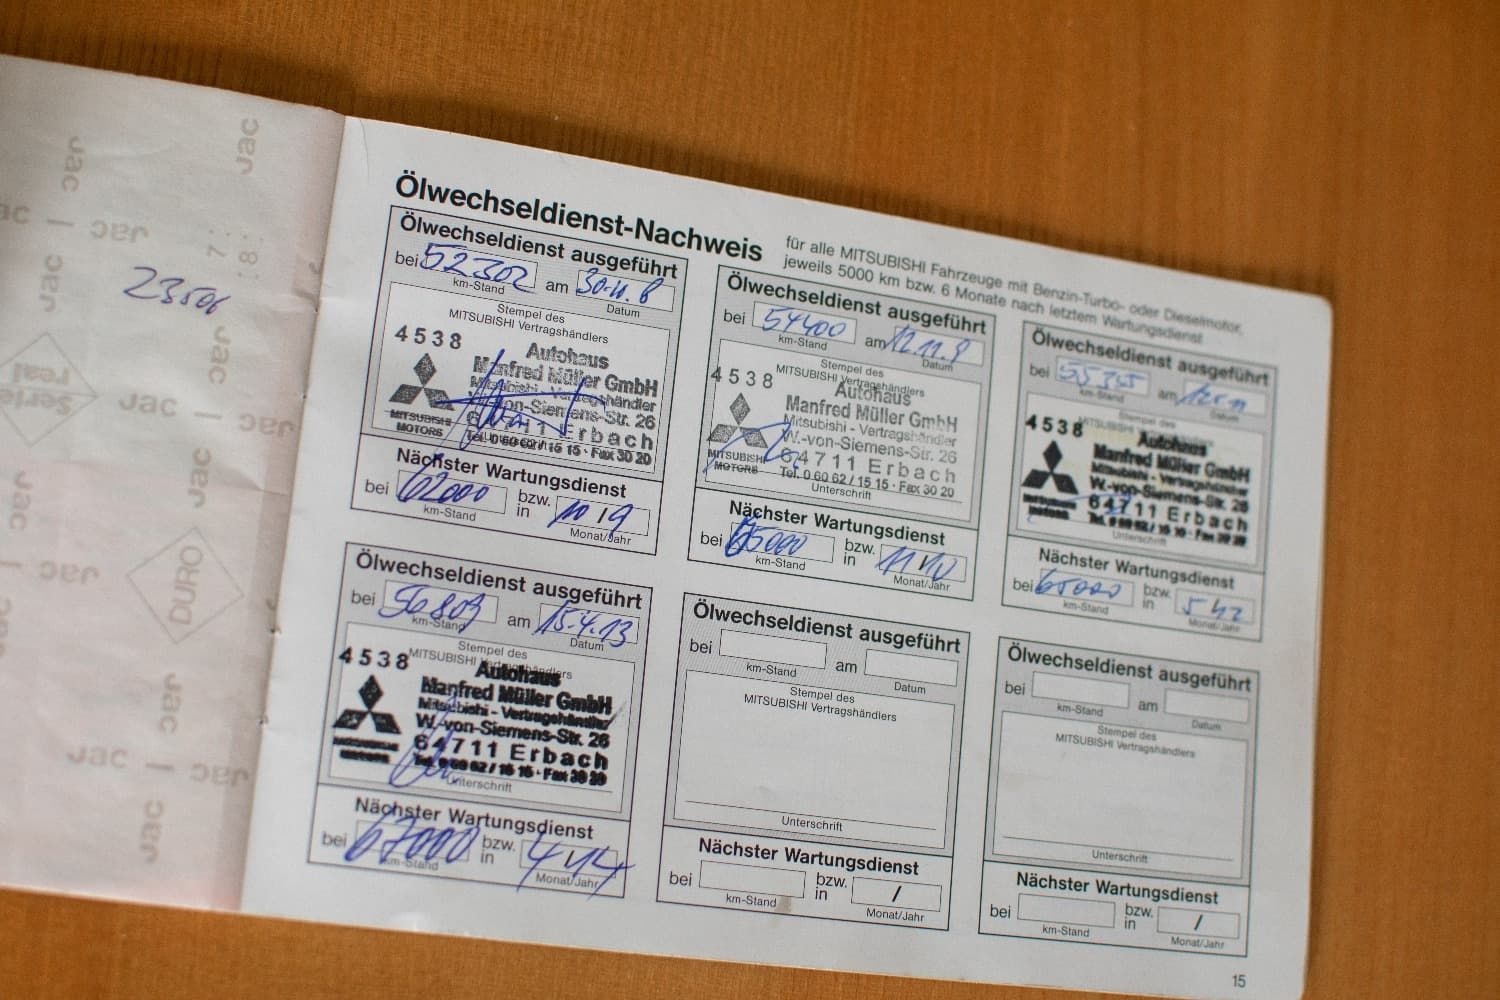 23506
7:
8:
Jac
Jac
Jac
real
Serie
DURO
Ölwechseldienst-Nachweis
für alle MITSUBISHI Fahrzeuge mit Benzin-Turbo- oder Dieselmotor,
jeweils 5000 km bzw. 6 Monate nach letztem Wartungsdienst
Ölwechseldienst ausgeführt
bei 52302 am 30.11.8
km-Stand Datum
Stempel des
MITSUBISHI Vertragshändlers
4538
Autohaus
Manfred Müller GmbH
Mitsubishi - Vertragshändler
W.-von-Siemens-Str. 26
64711 Erbach
Tel. 0 60 62 / 15 15 · Fax 30 20
MITSUBISHI
MOTORS
Unterschrift
Nächster Wartungsdienst
bei 62000 bzw. in 10/9
km-Stand Monat/Jahr
Ölwechseldienst ausgeführt
bei 54400 am 12.11.9
km-Stand Datum
Stempel des
MITSUBISHI Vertragshändlers
4538
Autohaus
Manfred Müller GmbH
Mitsubishi - Vertragshändler
W.-von-Siemens-Str. 26
64711 Erbach
Tel. 0 60 62 / 15 15 · Fax 30 20
MITSUBISHI
MOTORS
Unterschrift
Nächster Wartungsdienst
bei 65000 bzw. in 11/10
km-Stand Monat/Jahr
Ölwechseldienst ausgeführt
bei am
km-Stand Datum
Stempel des
MITSUBISHI Vertragshändlers
4538
Autohaus
Manfred Müller GmbH
Mitsubishi - Vertragshändler
W.-von-Siemens-Str. 26
64711 Erbach
Tel. 0 60 62 / 15 15 · Fax 30 20
MITSUBISHI
MOTORS
Unterschrift
Nächster Wartungsdienst
bei 65000 bzw. in 5/12
km-Stand Monat/Jahr
Ölwechseldienst ausgeführt
bei 56809 am 15.4.13
km-Stand Datum
Stempel des
MITSUBISHI Vertragshändlers
4538
Autohaus
Manfred Müller GmbH
Mitsubishi - Vertragshändler
W.-von-Siemens-Str. 26
64711 Erbach
Tel. 0 60 62 / 15 15 · Fax 30 20
MITSUBISHI
MOTORS
Unterschrift
Nächster Wartungsdienst
bei 67000 bzw. in 4/14
km-Stand Monat/Jahr
Ölwechseldienst ausgeführt
bei am
km-Stand Datum
Stempel des
MITSUBISHI Vertragshändlers
Unterschrift
Nächster Wartungsdienst
bei bzw. in /
km-Stand Monat/Jahr
Ölwechseldienst ausgeführt
bei am
km-Stand Datum
Stempel des
MITSUBISHI Vertragshändlers
Unterschrift
Nächster Wartungsdienst
bei bzw. in /
km-Stand Monat/Jahr
15